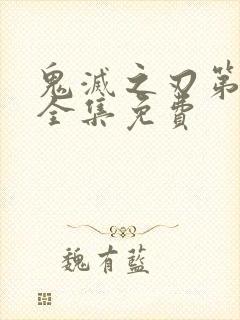 鬼滅之刃第
全集免費
魏有藍